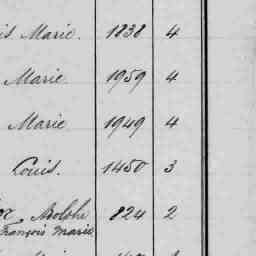 is Marie. 1838 4
Marie 1959 4
Marie 1949 4
Louis. 1450 3
Adolphe 824 2
François Marie